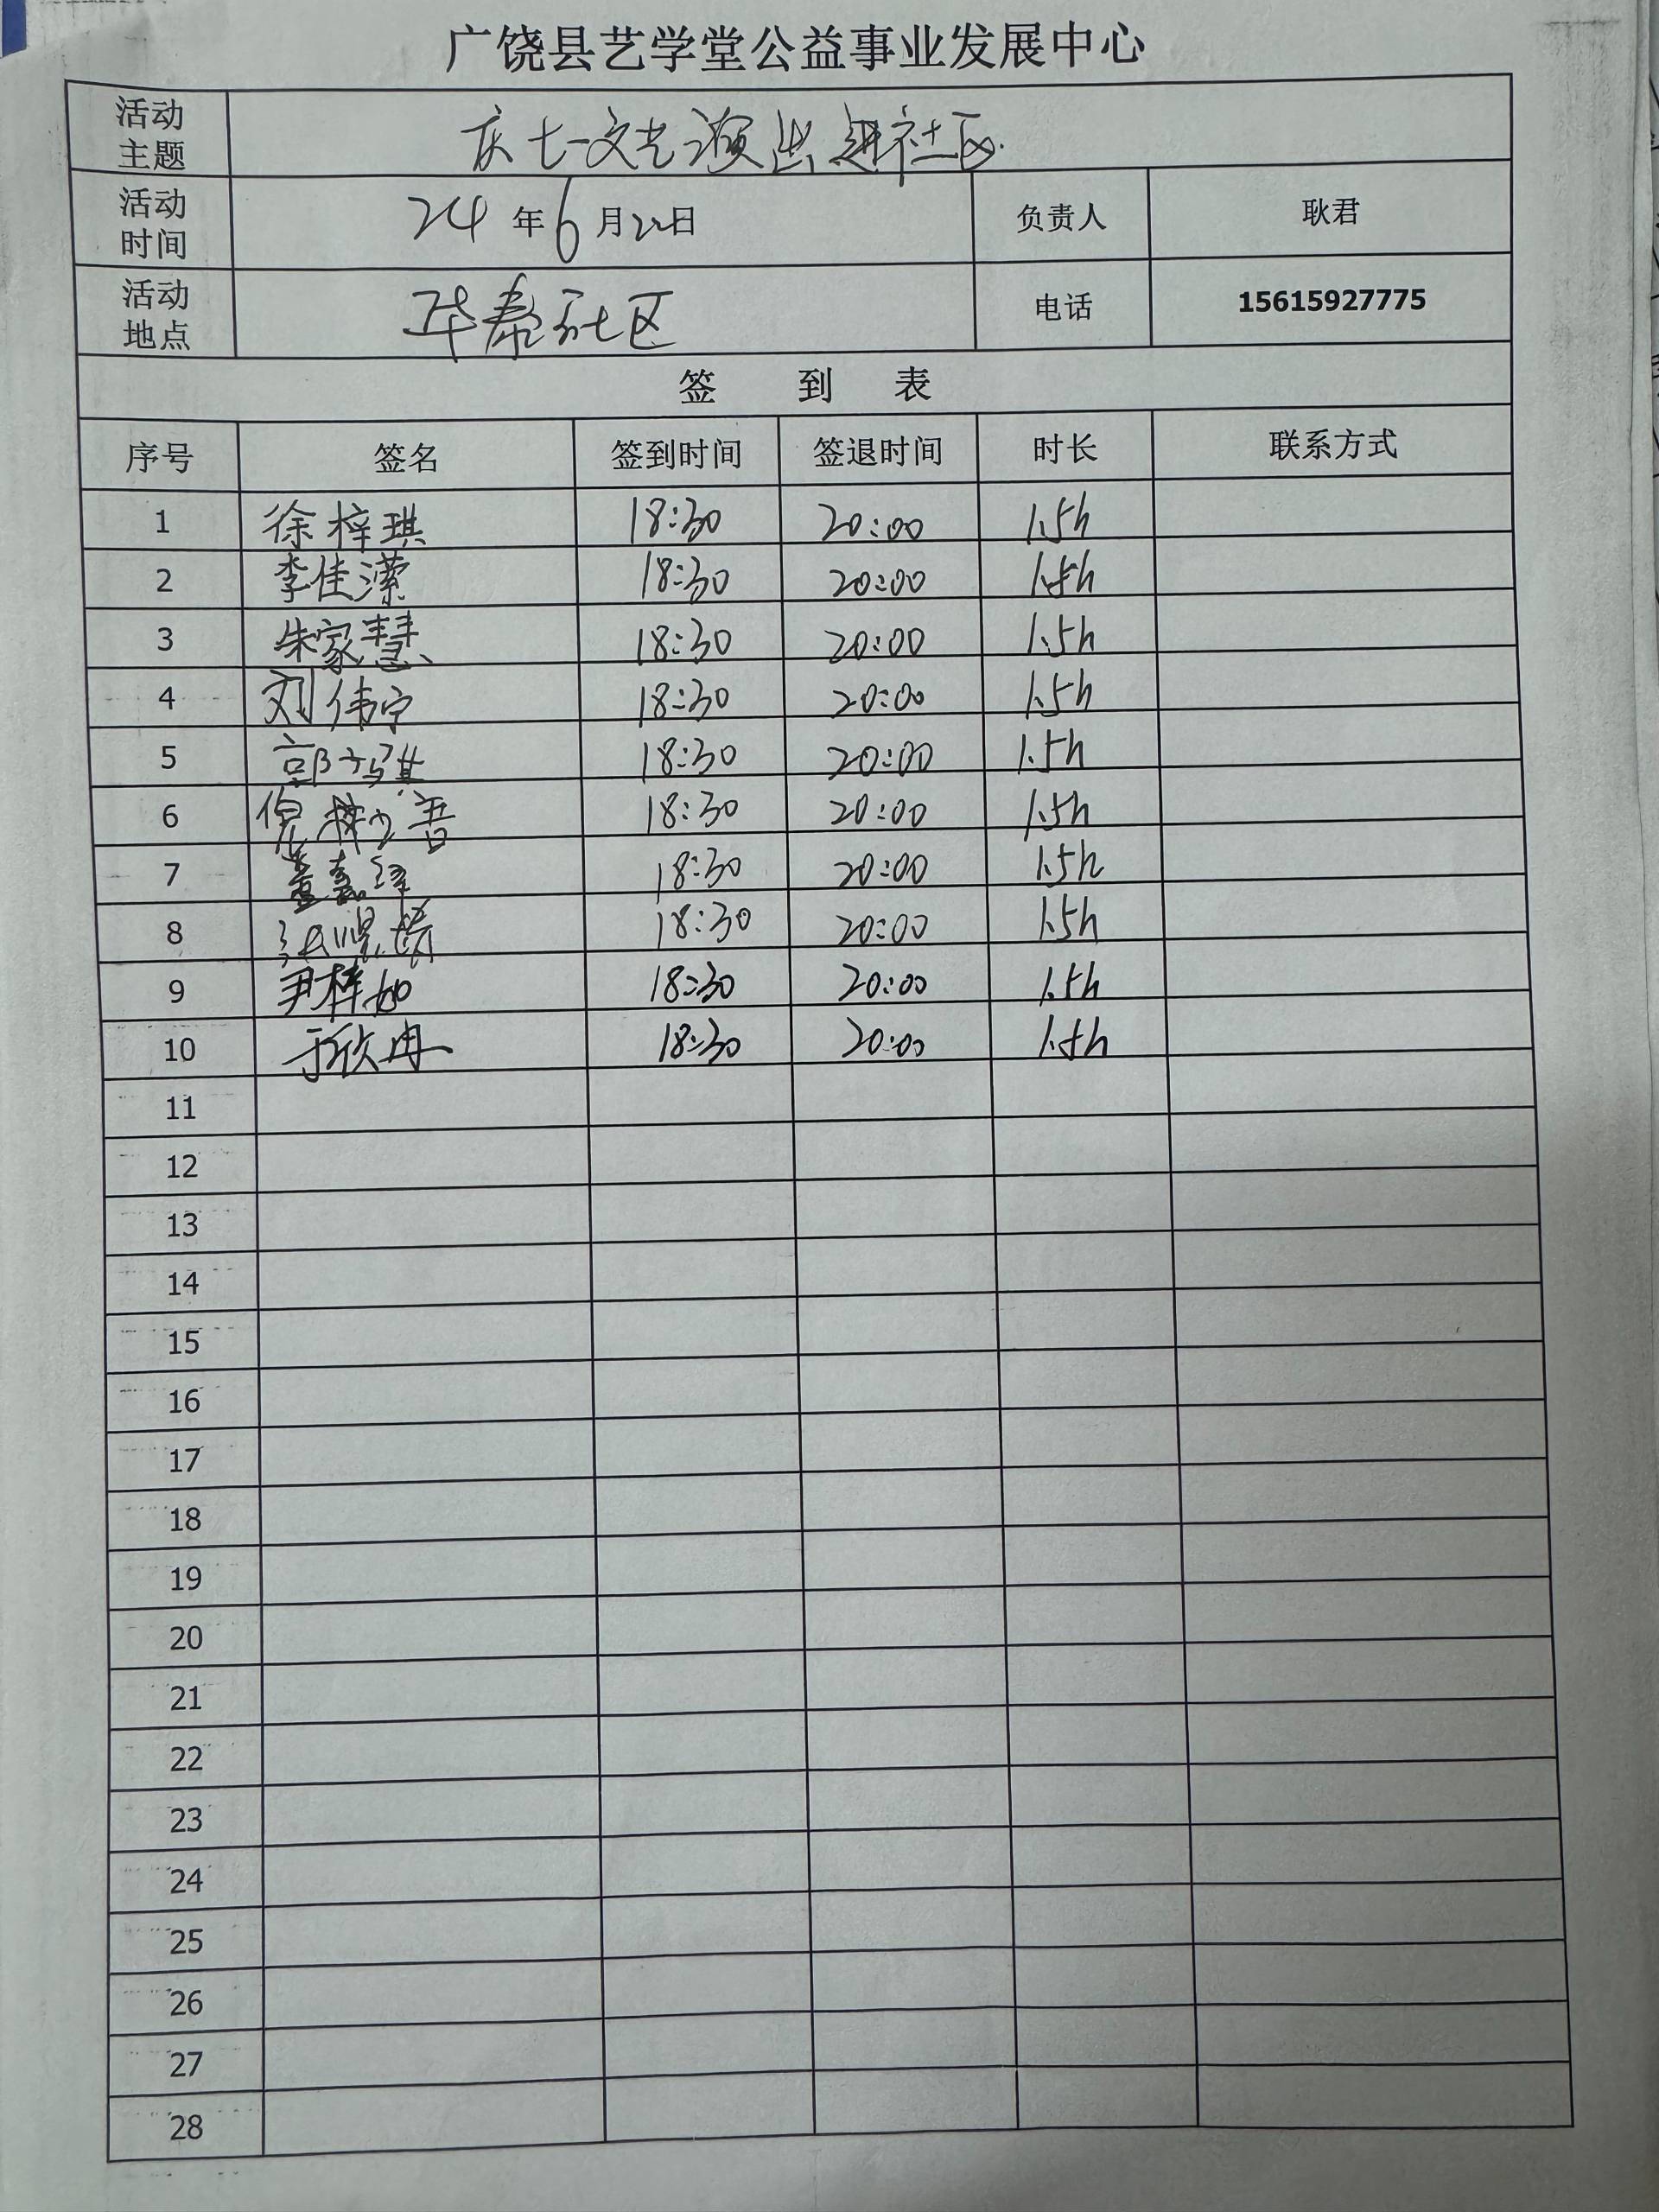 广饶县艺学堂公益事业发展中心
活动主题 庆七一文艺演出进社区
活动时间 24年6月22日 负责人 耿君
活动地点 华泰社区 电话 15615927775
签 到 表
序号 签名 签到时间 签退时间 时长 联系方式
1 徐梓琪 18:30 20:00 1.5h
2 李佳潆 18:30 20:00 1.5h
3 朱家慧 18:30 20:00 1.5h
4 刘伟宁 18:30 20:00 1.5h
5 郭 18:30 20:00 1.5h
6 倪 18:30 20:00 1.5h
7 董嘉 18:30 20:00 1.5h
8 18:30 20:00 1.5h
9 尹梓如 18:30 20:00 1.5h
10 于欣冉 18:30 20:00 1.5h
11
12
13
14
15
16
17
18
19
20
21
22
23
24
25
26
27
28